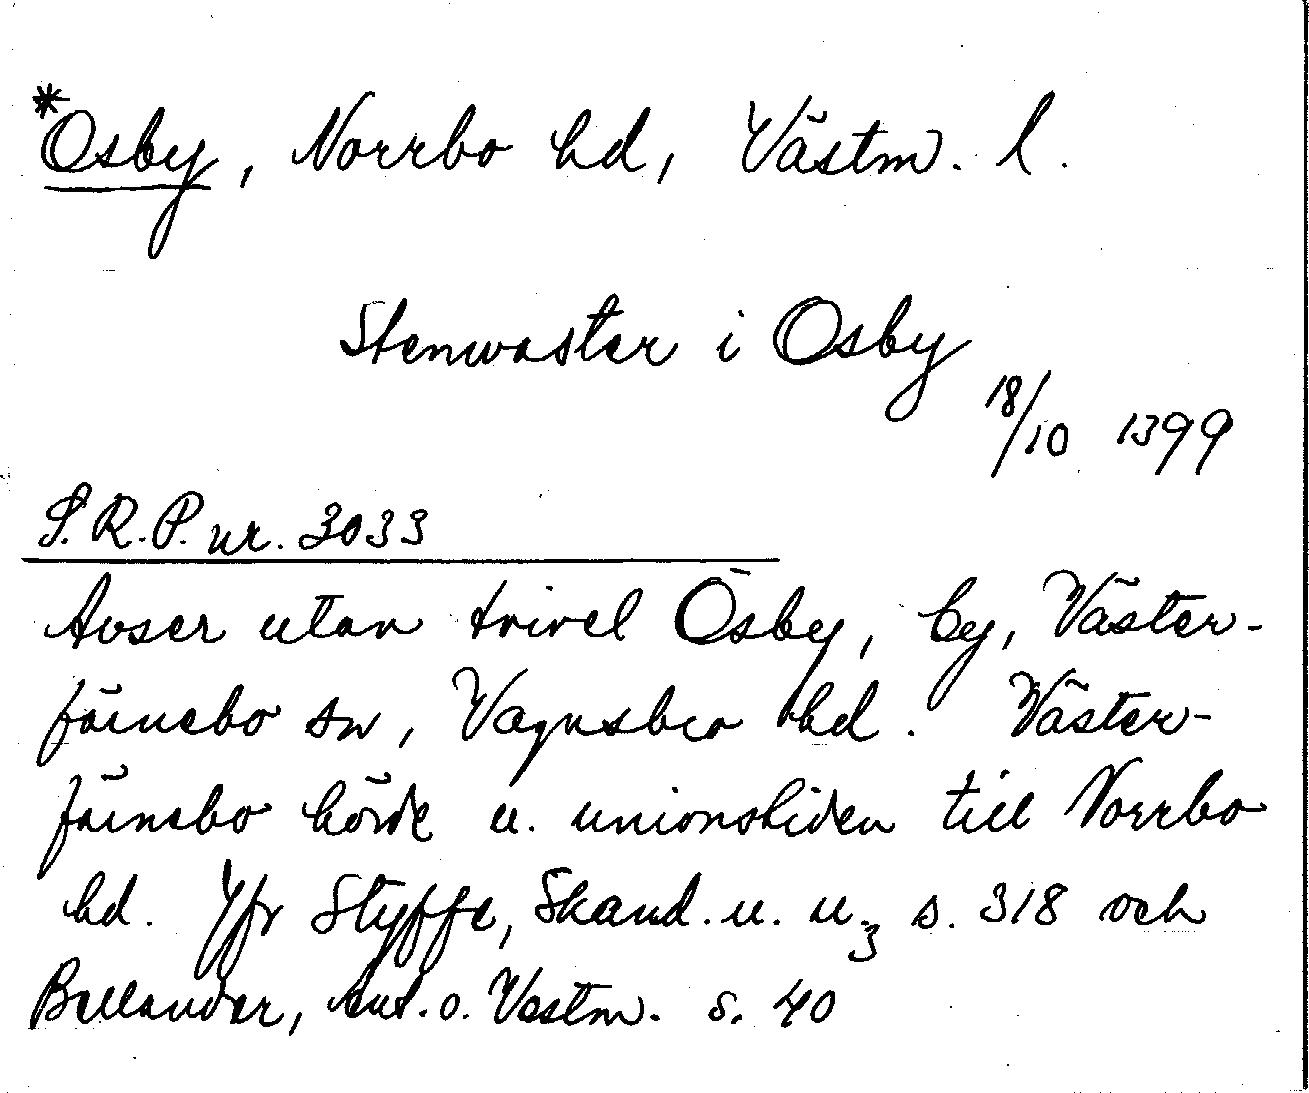 *Osby, Norrbo hd, Västm. l.
Stenwaster i Osby
18/10 1399
S.R.P. nr. 3033
Avser utan tvivel Ösby, by, Väster-
färnebo sn, Vagnsbro hd. Väster-
färnebo hörde u. unionstiden till Norrbo
hd. Jfr Styffe, Skand. u. u3 s. 318 och
Bellander, s. 40